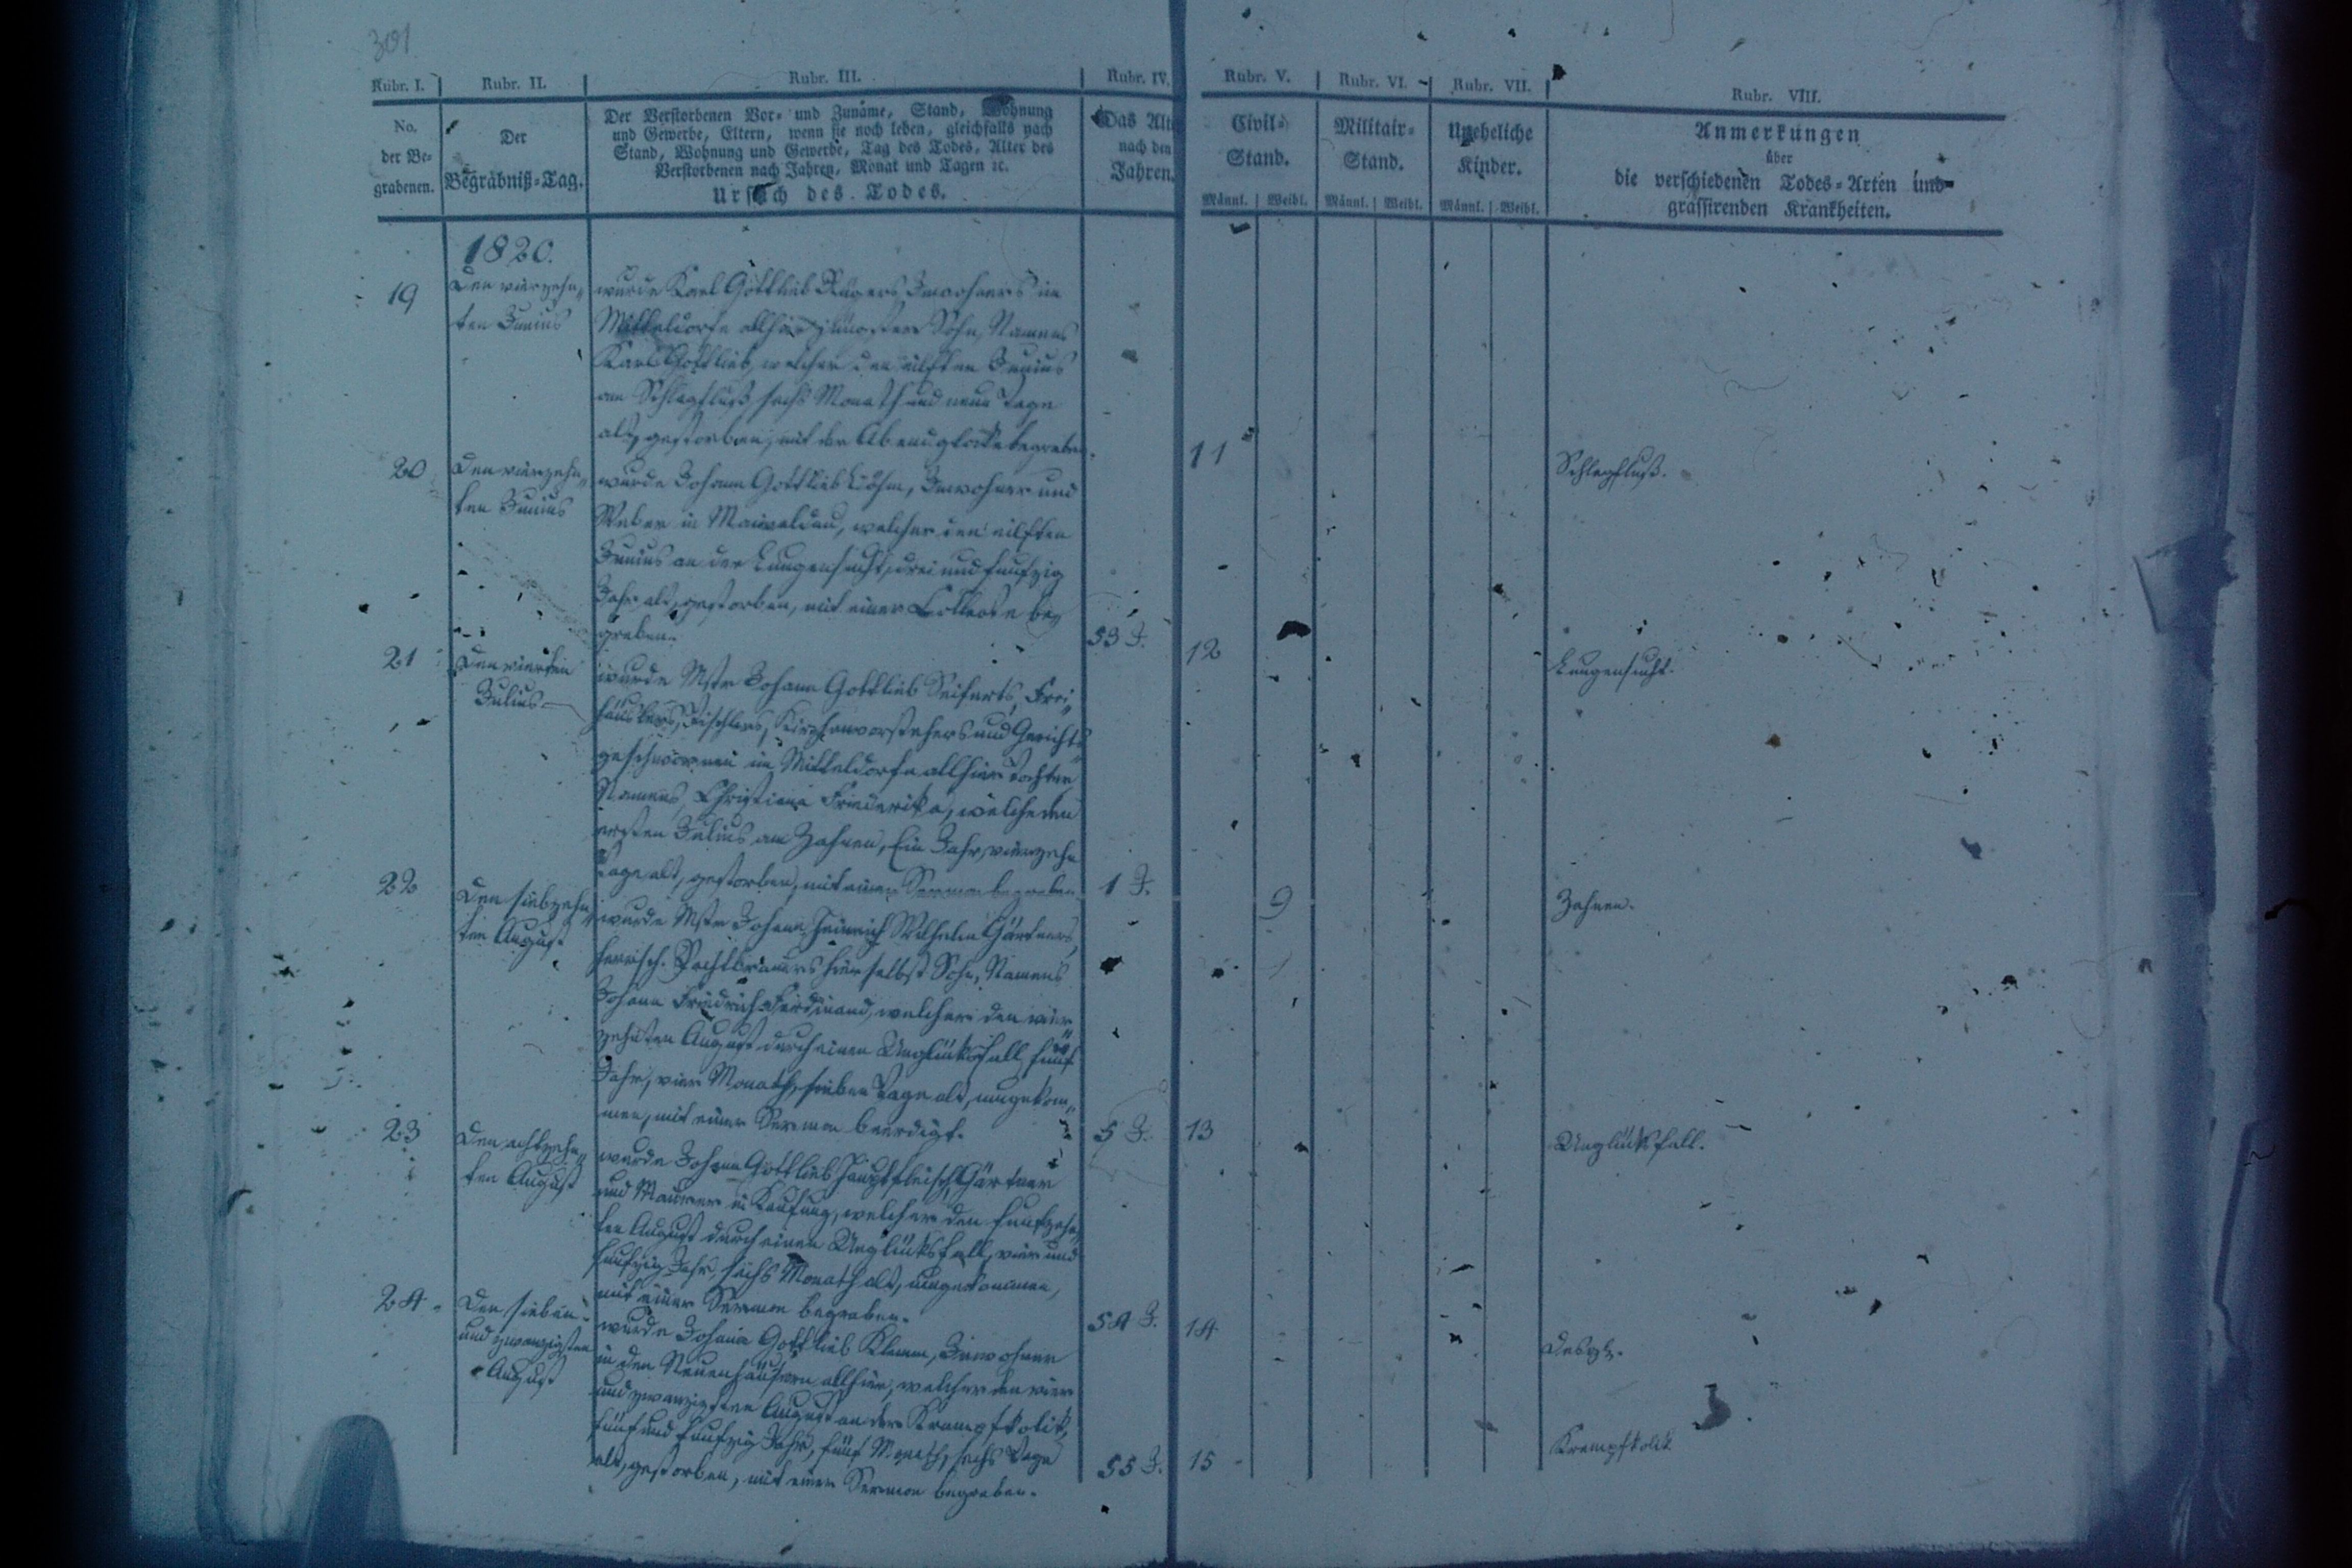 301
Rubr. I. Rubr. II. Rubr. III. Rubr. IV. Rubr. V. Rubr. VI. Rubr. VII. Rubr. VIII.
No. der Be-
grabenen.
Der
Begräbniß-Tag.
Der Verstorbenen Vor- und Zuname, Stand, Wohnung
und Gewerbe, Eltern, wenn sie noch leben, gleichfalls nach
Stand, Wohnung und Gewerbe, Tag des Todes, Alter des
Verstorbenen nach Jahren, Monat und Tagen ꝛc.
Ursach des Todes.
Das Alte
nach den
Jahren.
Civil-
Stand.
Männl. Weibl.
Militair-
Stand.
Männl. Weibl.
Uneheliche
Kinder.
Männl. Weibl.
Anmerkungen
über
die verschiedenen Todes-Arten und
grassirenden Krankheiten.
1820.
19
Den vierzehn-
ten Junius
wurde Karl Gottlieb Rügers Inwohners im
Mitteldorfe allhier jüngster Sohn, Namens
Karl Gottlieb, welcher den eilften Junius
am Schlagfluß sechs Monath und neun Tage
alt, gestorben, mit der Abendglocke begraben.
11
Schlagfluß.
20
Den vierzehn-
ten Junius
wurde Johann Gottlieb Inwohner und
Weber in Maiwaldau, welcher den eilften
Junius an der Lungensucht, drei und funfzig
Jahr alt, gestorben, mit einer Collecte be-
graben.
53 J.
12
Lungensucht.
21
Den vierten
Julius
wurde Mstr Johann Gottlieb Seiferts, Frei-
häuslers, Tischlers, Kirchenvorstehers und Gerichts-
geschwornen im Mitteldorfe allhier Tochter
Namens, Christiane Friederike, welche den
ersten Julius am Zahnen, Ein Jahr, vierzehn
Tage alt, gestorben, mit einer Sermon begraben.
1 J.
9
Zahnen.
22
Den siebzehn-
ten August
wurde Mstr Johann Heinrich Wilhelm Gärtners,
herrsch. Pachtbrauers hierselbst Sohn, Namens
Johann Friedrich Ferdinand, welcher den vier-
zehnten August durch einen Unglücksfall, fünf
Jahr, vier Monath, sieben Tage alt, umgekom-
men, mit einer Sermon beerdigt.
5 J.
13
Unglücksfall.
23
Den achtzehn-
ten August
wurde Johann Gottlieb Hauptfleisch, Gärtner
und Maurer in Kaufung, welcher den funfzehn-
ten August durch einen Unglücksfall, vier und
funfzig Jahr, sechs Monath alt, umgekommen,
mit einer Sermon begraben.
54 J.
14
Desgl.
24
Den sieben-
und zwanzigsten
August
wurde Johann Gottlieb Klemm, Inwohner
in den Neuenhäusern allhier, welcher den vier
und zwanzigsten August an der Krampfkolik,
fünf und funfzig Jahr, fünf Monath, sechs Tage
alt, gestorben, mit einer Sermon begraben.
55 J.
15
Krampfkolik